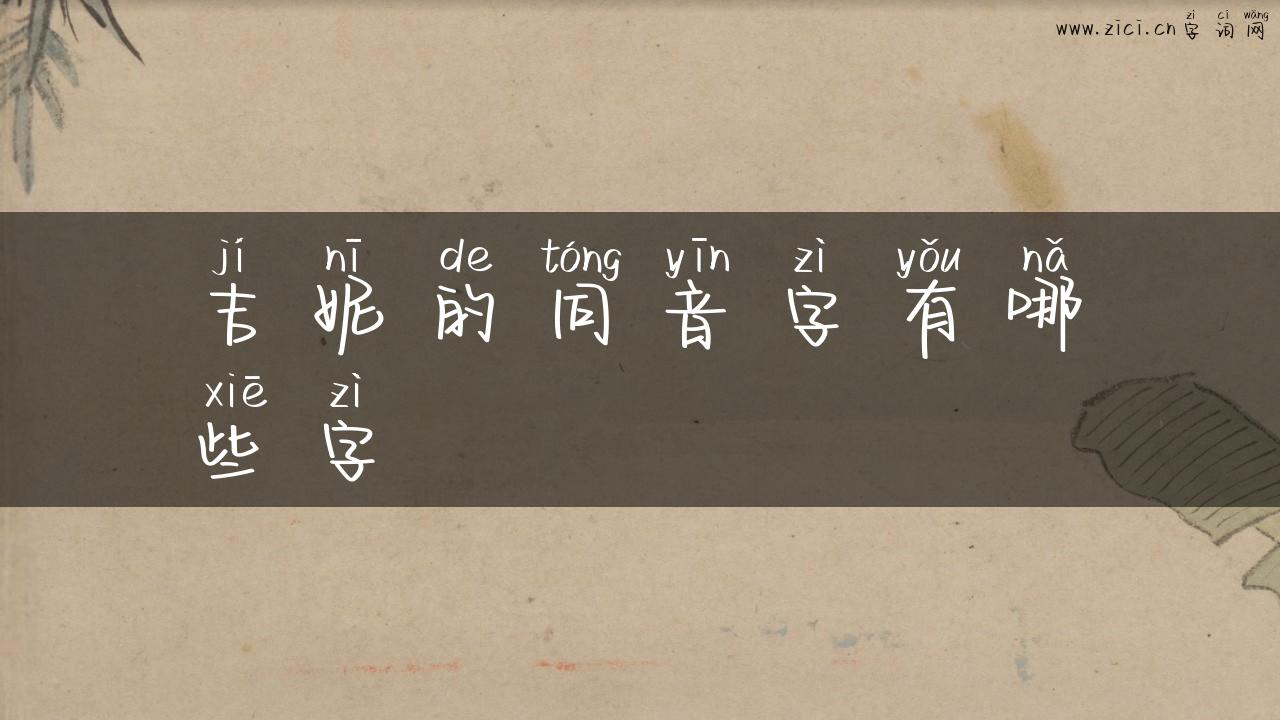 zì cí wǎng
www.zici.cn 字 词 网
jí nī de tóng yīn zì yǒu nǎ
吉 妮 的 同 音 字 有 哪
xiē zì
些 字